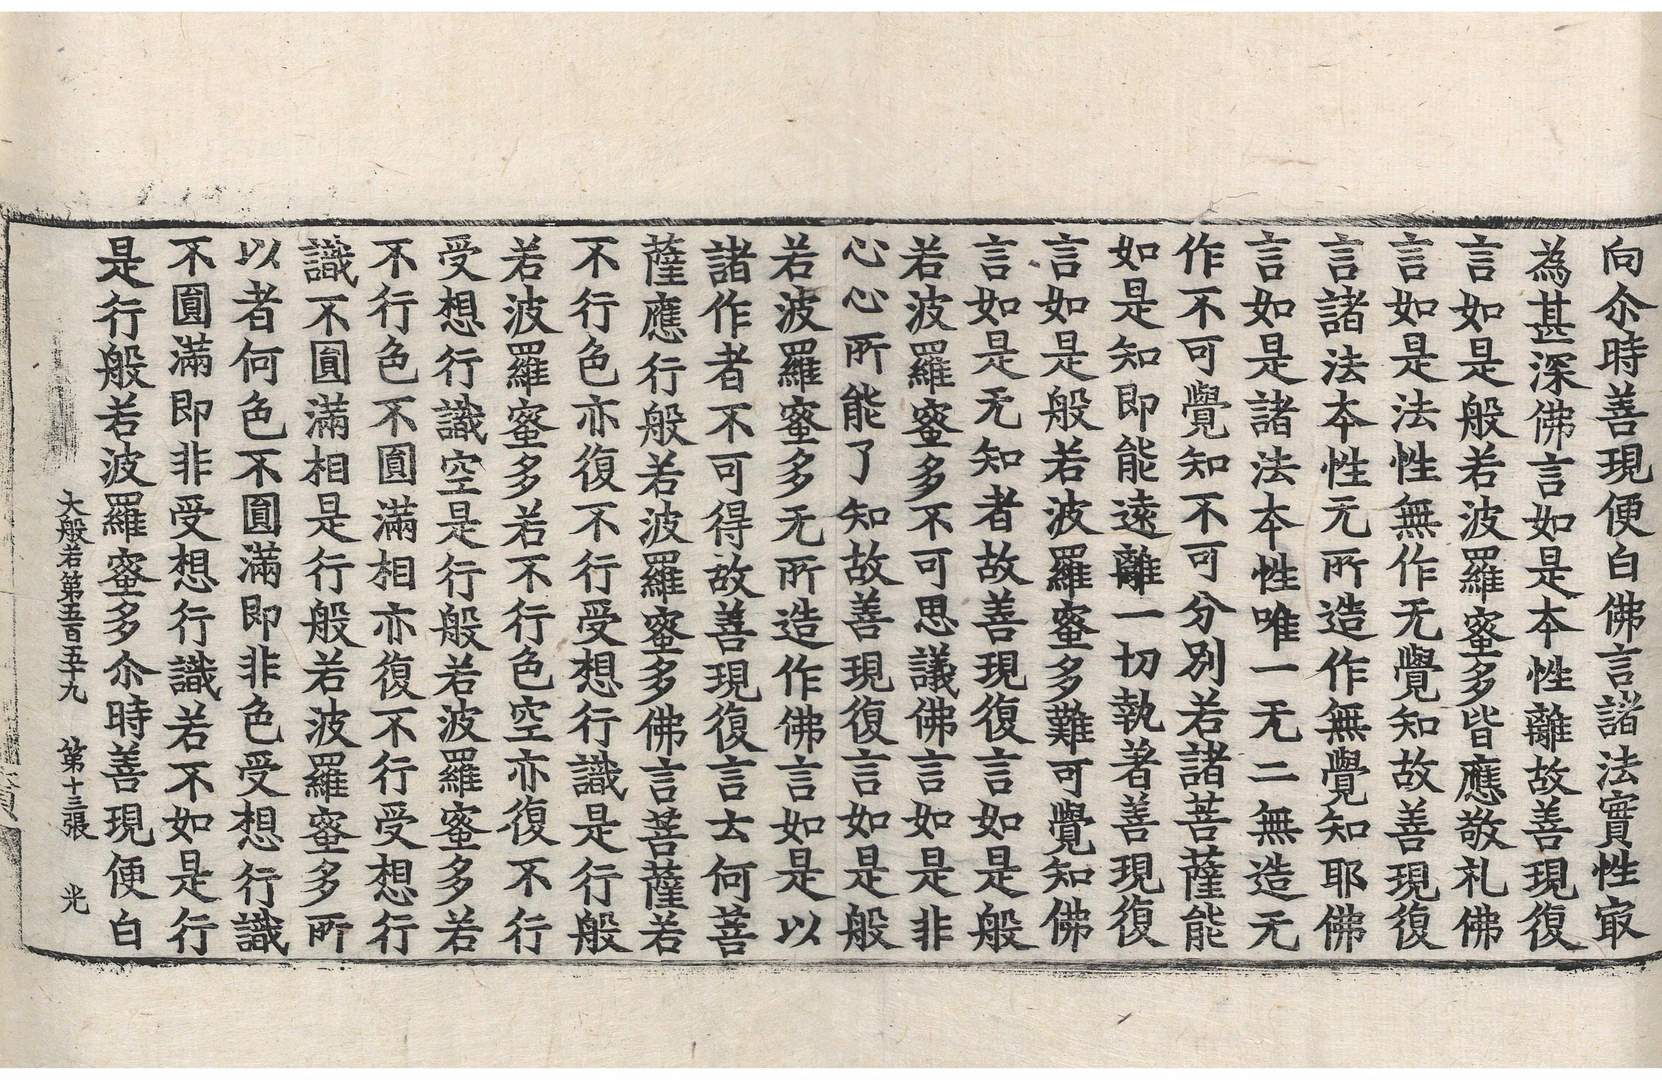 向尒時善現便白佛言諸法實性㝡
為甚深佛言如是本性離故善現復
言如是般若波羅蜜多皆應敬礼佛
言如是法性無作无覺知故善現復
言諸法本性无所造作無覺知耶佛
言如是諸法本性唯一无二無造无
作不可覺知不可分別若諸菩薩能
如是知即能遠離一切執著善現復
言如是般若波羅蜜多難可覺知佛
言如是无知者故善現復言如是般
若波羅蜜多不可思議佛言如是非
心心所能了知故善現復言如是般
若波羅蜜多无所造作佛言如是以
諸作者不可得故善現復言云何菩
薩應行般若波羅蜜多佛言菩薩若
不行色亦復不行受想行識是行般
若波羅蜜多若不行色空亦復不行
受想行識空是行般若波羅蜜多若
不行色不圓滿相亦復不行受想行
識不圓滿相是行般若波羅蜜多所
以者何色不圓滿即非色受想行識
不圓滿即非受想行識若不如是行
是行般若波羅蜜多尒時善現便白
大般若第五百五十九 第十三張 光